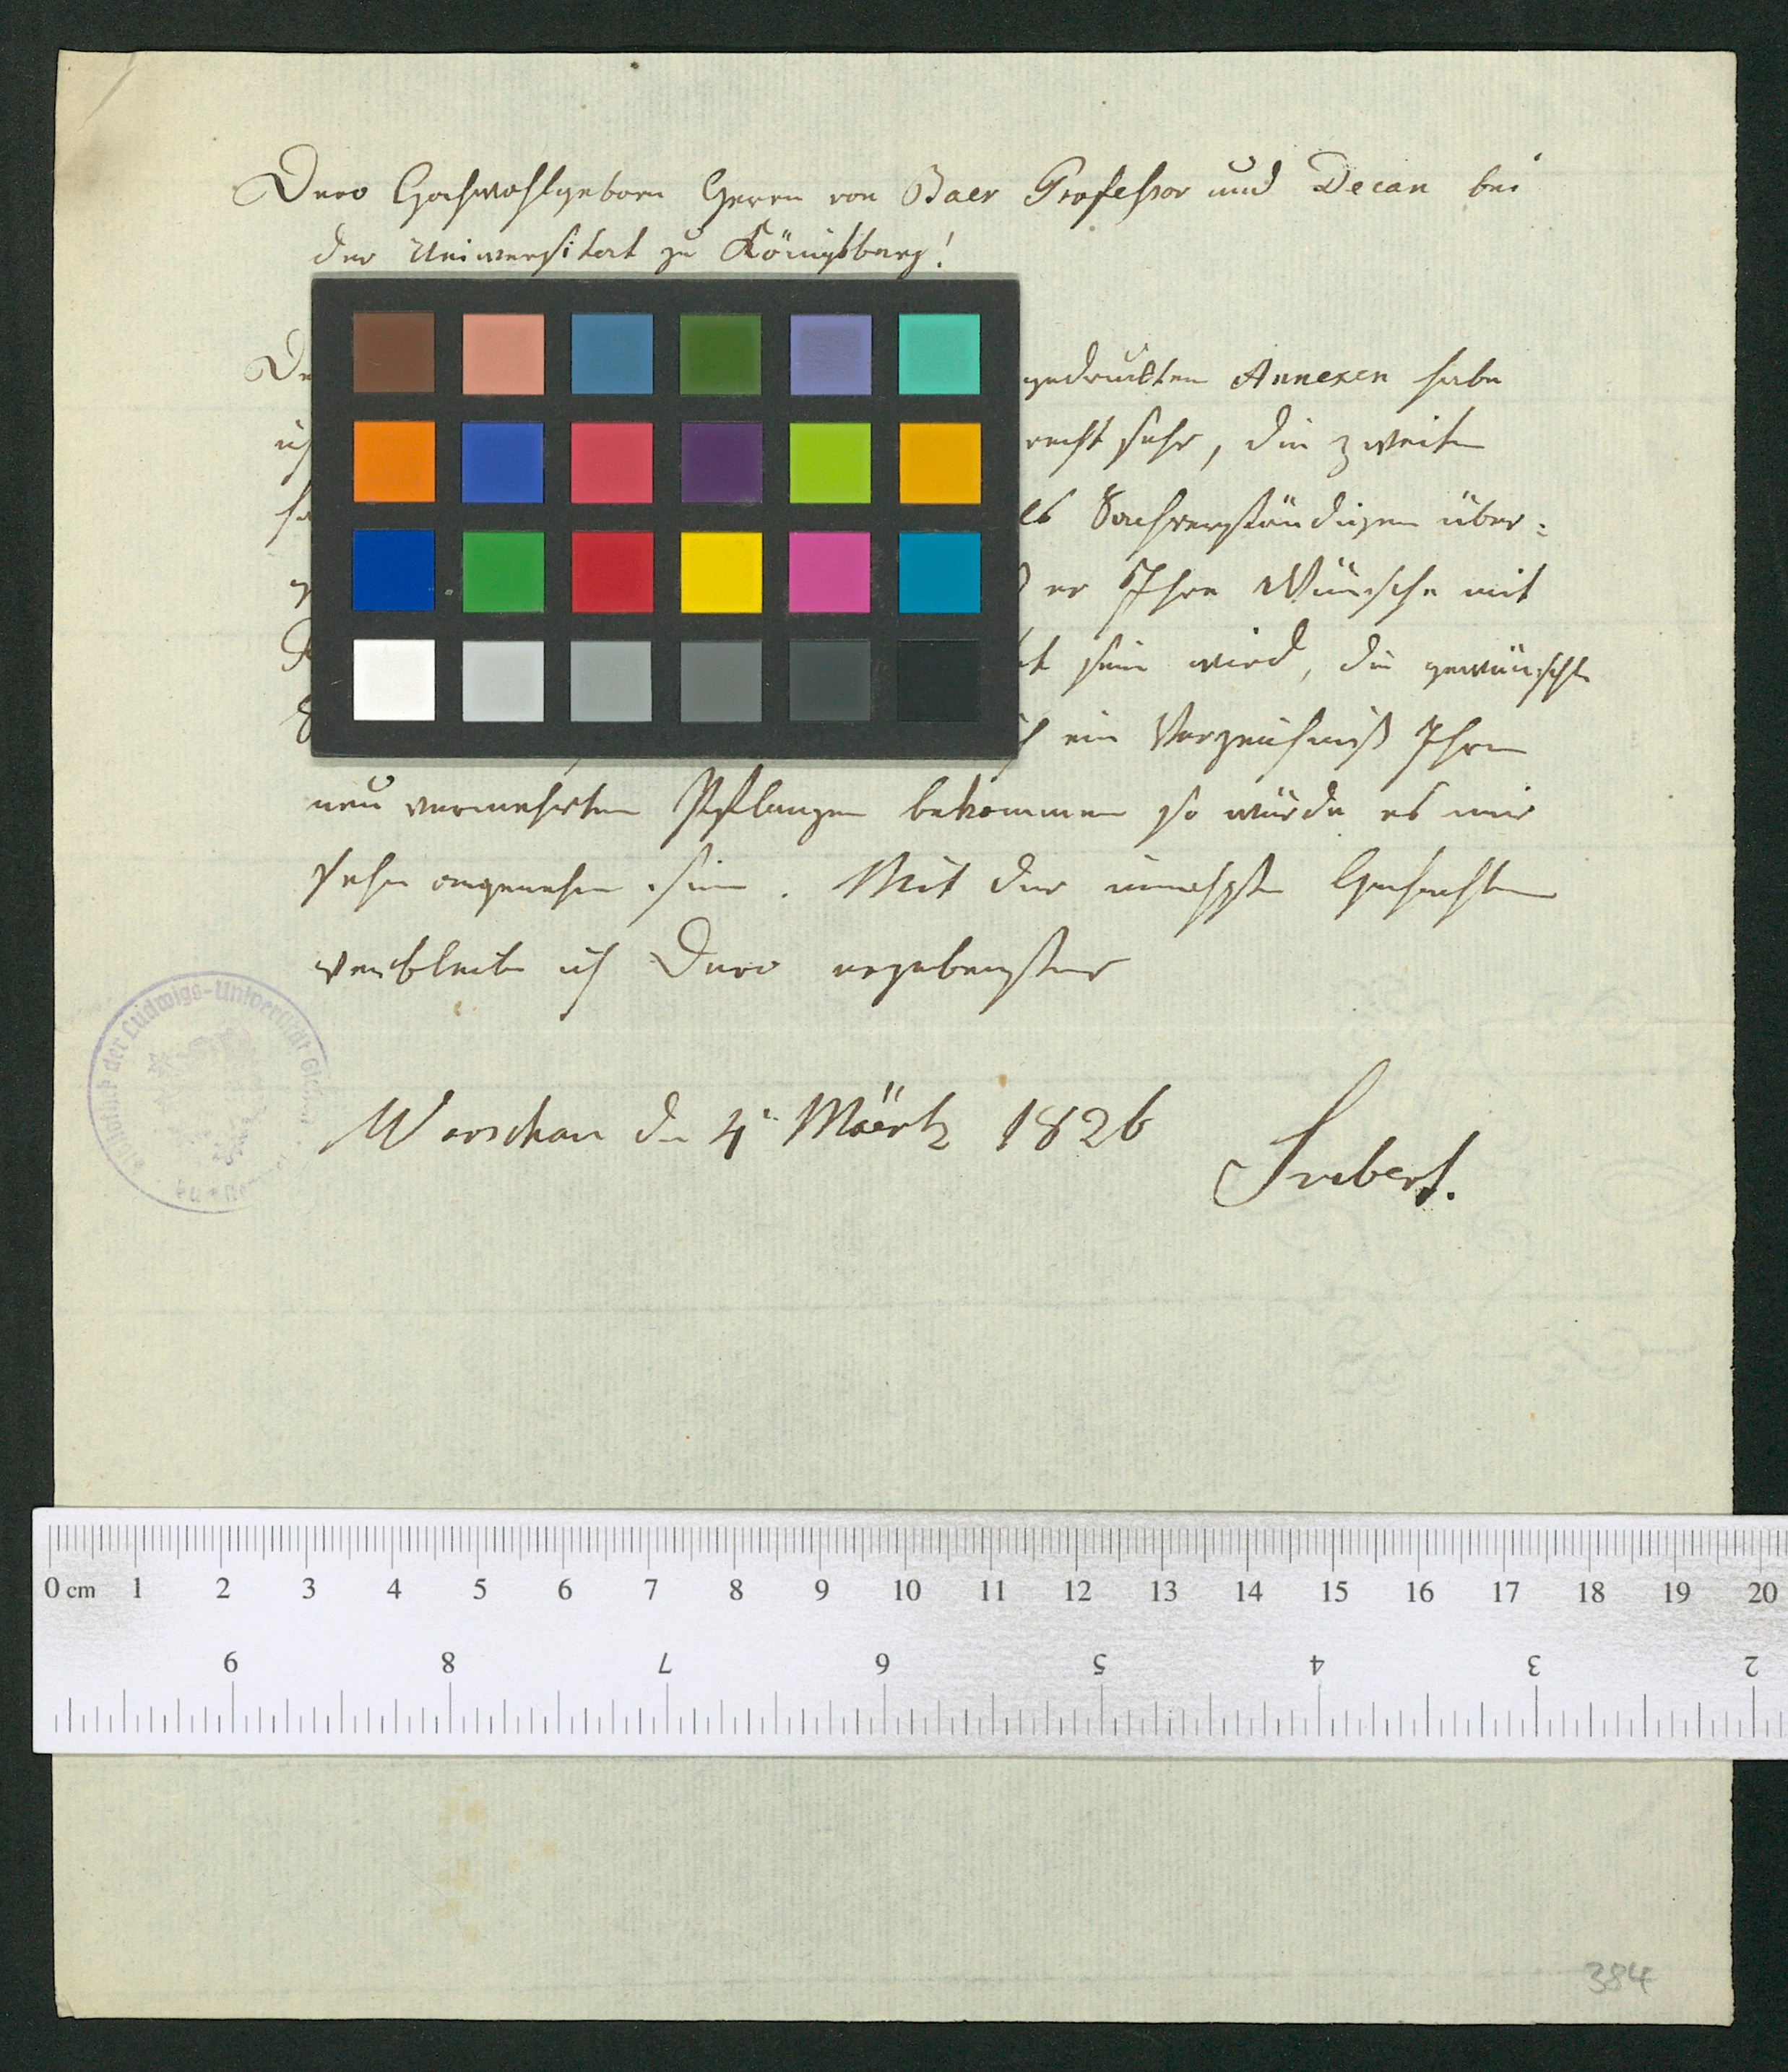 Dero Hochwohlgeborn Herrn von Baer Professor und Decan bei
der Universitaet zu Königsberg!
gedruckten Annexen habe
ich recht sehr, die zweite
Sachverständigen über=
er Ihre Wünsche mit
sein wird, die gewünschte
ein Verzeichniß Ihrer
neu vermehrten Pflanzen bekommen so würde es mir
sehr angenehm sein. Mit der
verbleibe ich Dero ergebenster
Warschau den 4 Märtz 1826
der Ludwigs-Universität Giessen
0 cm 1 2 3 4 5 6 7 8 9 10 11 12 13 14 15 16 17 18 19 20
9 8 7 6 5 4 3 2
384